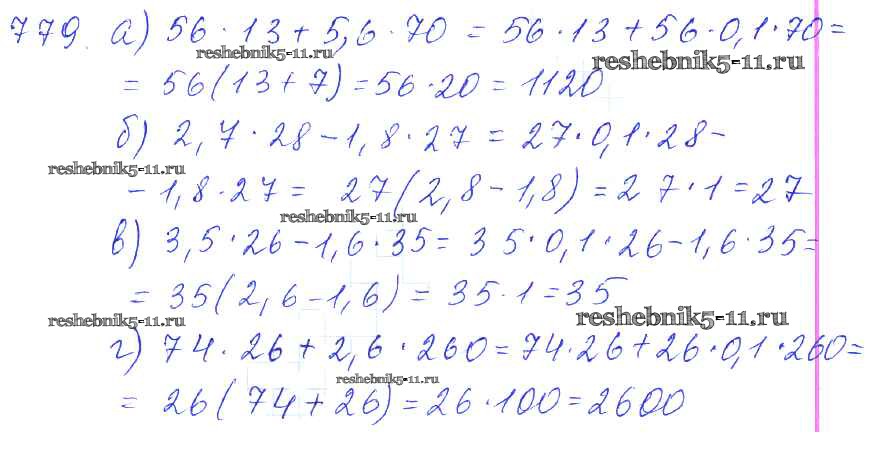 779. а) 56·13 + 5,6·70 = 56·13 + 56·0,1·70 =
reshebnik5-11.ru
reshebnik5-11.ru
= 56(13+7) = 56·20 = 1120
б) 2,7·28 - 1,8·27 = 27·0,1·28 -
reshebnik5-11.ru
- 1,8·27 = 27(2,8 - 1,8) = 27·1 = 27
reshebnik5-11.ru
в) 3,5·26 - 1,6·35 = 35·0,1·26 - 1,6·35 =
= 35(2,6 - 1,6) = 35·1 = 35
reshebnik5-11.ru
reshebnik5-11.ru
г) 74·26 + 2,6·260 = 74·26 + 26·0,1·260 =
reshebnik5-11.ru
= 26(74 + 26) = 26·100 = 2600